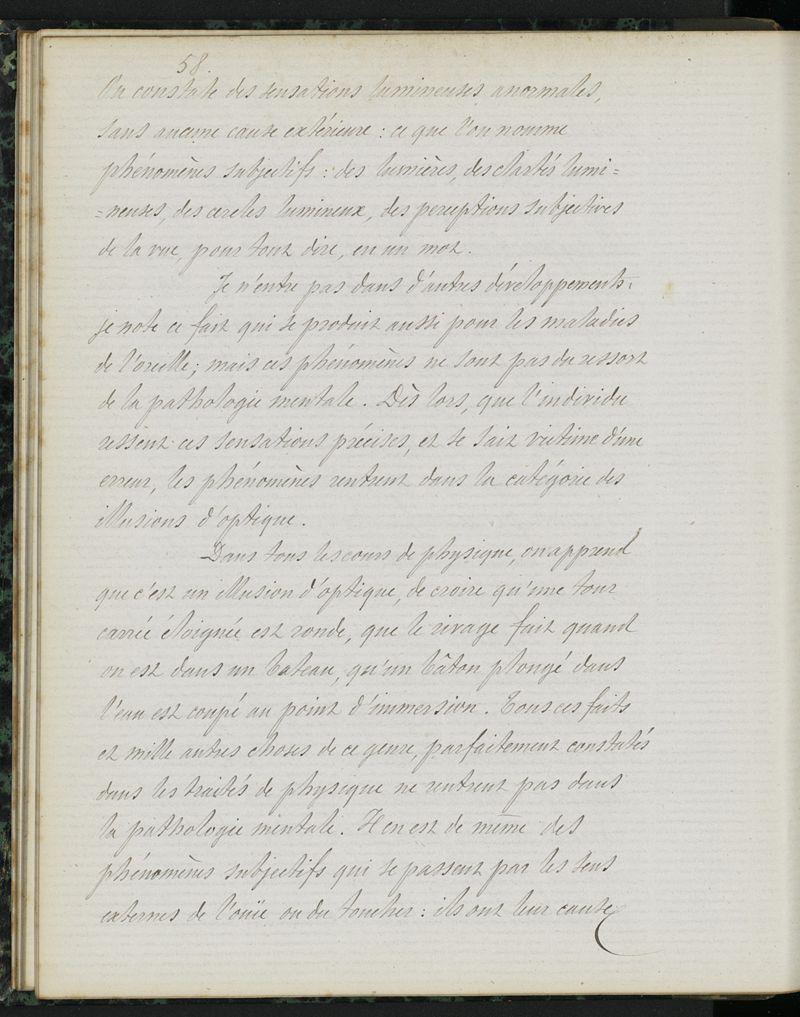 58
On constate des sensations lumineuses anormales,
sans aucune cause extérieure : ce que l'on nomme
phénomènes subjectifs : des lumières, des clartés lumi=
=neuses, des cercles lumineux, des perceptions subjectives
de la vue, pour tout dire, en un mot.
Je n'entre pas dans d'autres développements;
je note ce fait qui se produit aussi pour les maladies
de l'oreille; mais ces phénomènes ne sont pas du ressort
de la pathologie mentale. Dès lors, que l'individu
ressent ces sensations précises, et se sait victime d'une
erreur, les phénomènes rentrent dans la catégorie des
illusions d'optique.
Dans tous les cours de physique, on apprend
que c'est un illusion d'optique, de croire qu'une tour
carrée éloignée est ronde, que le rivage fait quand
on est dans un bateau, qu'un bâton plongé dans
l'eau est coupé au point d'immersion. Tous ces faits
et mille autres choses de ce genre, parfaitement constatés
dans les traités de physique ne rentrent pas dans
la pathologie mentale. Il en est de même des
phénomènes subjectifs qui se passent par les sens
externes de l'ouïe ou du toucher : ils ont leur cause